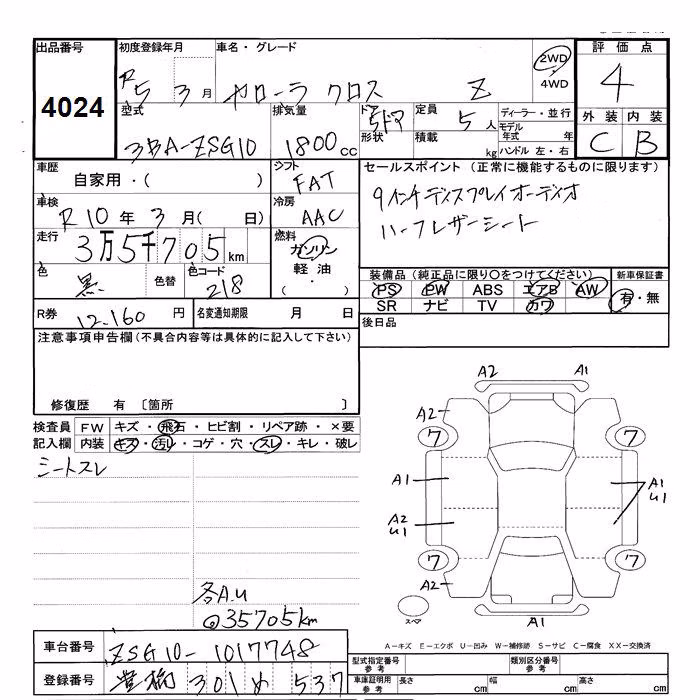 出品番号 初度登録年月 車名・グレード 評価点
4024
R5 3月 カローラ クロス Z 2WD・4WD 4
型式 排気量 ドア 定員 ディーラー・並行 外装 内装
3BA-ZSG10 1800cc 5ドア 5人 モデル年式 年 C B
形状 積載 kg ハンドル 左・右
車歴 シフト セールスポイント(正常に機能するものに限ります)
自家用・( ) FAT 9インチディスプレイオーディオ
車検 冷房 ハーフレザーシート
R10年 3月( 日) AAC
走行 燃料
3万5千705km ガソリン
軽油
・
色 色替 色コード 装備品(純正品に限り○をつけてください) 新車保証書
黒 218 PS PW ABS エアB AW 有・無
SR ナビ TV カワ
R券 12,160円 名変通知期限 月 日 後日品
注意事項申告欄(不具合内容等は具体的に記入して下さい)
修復歴 有 〔箇所 〕
検査員 FW キズ・飛石・ヒビ割・リペア跡・×要
記入欄 内装 キズ・汚レ・コゲ・穴・スレ・キレ・破レ
シートスレ
A2 A1
A2
7 7
A1 A1
U1
A2
U1
7 7
A2
各A.U
@35705km
スペア
A1
A-キズ E-エクボ U-凹み W-補修跡 S-サビ C-腐食 XX-交換済
車台番号 ZSG10-1017748
型式指定番号 参考 類別区分番号 参考
登録番号 豊橋 301 め 537
車庫証明用 参考 長さ cm 幅 cm 高さ cm